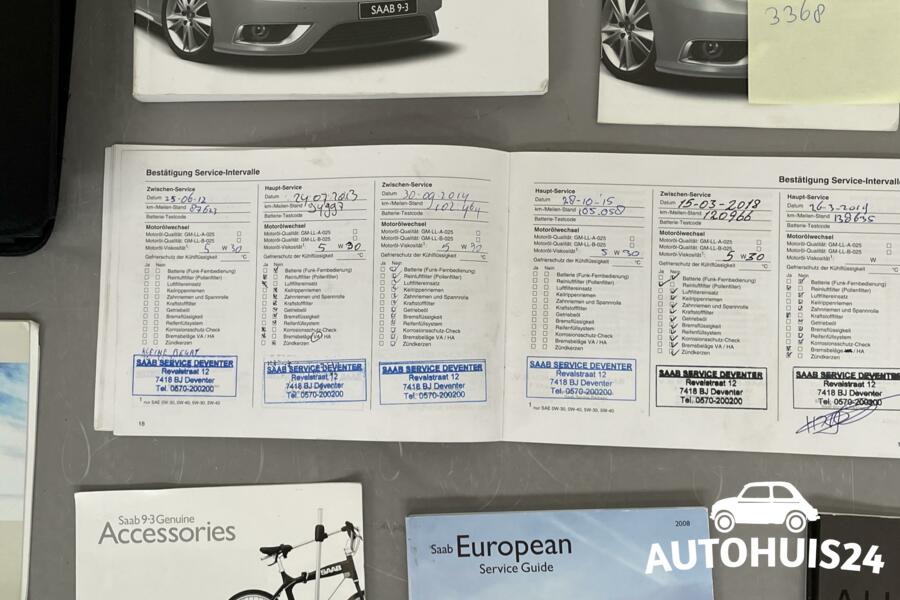 SAAB 9-3
3368
Bestätigung Service-Intervalle
Zwischen-Service
Datum 25-06-12
km-/Meilen-Stand 87623
Batterie-Testcode
Motorölwechsel
Motoröl-Qualität: GM-LL-A-025
Motoröl-Qualität: GM-LL-B-025
Motoröl-Viskosität¹: 5 W 30
Gefrierschutz der Kühlflüssigkeit °C
Ja Nein
Batterie (Funk-Fernbedienung)
Reinluftfilter (Pollenfilter)
Luftfiltereinsatz
Keilrippenriemen
Zahnriemen und Spannrolle
Kraftstofffilter
Getriebeöl
Bremsflüssigkeit
Reifenfüllsystem
Korrosionsschutz-Check
Bremsbeläge VA / HA
Zündkerzen
KLEINE BEURT
SAAB SERVICE DEVENTER
Revalstraat 12
7418 BJ Deventer
Tel. 0570-200200
¹ nur SAE 0W-30, 0W-40, 5W-30, 5W-40
18
Haupt-Service
Datum 24-07-2013
km-/Meilen-Stand 94997
Batterie-Testcode
Motorölwechsel
Motoröl-Qualität: GM-LL-A-025
Motoröl-Qualität: GM-LL-B-025
Motoröl-Viskosität¹: 5 W 30
Gefrierschutz der Kühlflüssigkeit °C
Ja Nein
Batterie (Funk-Fernbedienung)
Reinluftfilter (Pollenfilter)
Luftfiltereinsatz
Keilrippenriemen
Zahnriemen und Spannrolle
Kraftstofffilter
Getriebeöl
Bremsflüssigkeit
Reifenfüllsystem
Korrosionsschutz-Check
Bremsbeläge VA / HA
Zündkerzen
SAAB SERVICE DEVENTER
Revalstraat 12
7418 BJ Deventer
Tel. 0570-200200
Zwischen-Service
Datum 30-09-2014
km-/Meilen-Stand 102.464
Batterie-Testcode
Motorölwechsel
Motoröl-Qualität: GM-LL-A-025
Motoröl-Qualität: GM-LL-B-025
Motoröl-Viskosität¹: 5 W 30
Gefrierschutz der Kühlflüssigkeit °C
Ja Nein
Batterie (Funk-Fernbedienung)
Reinluftfilter (Pollenfilter)
Luftfiltereinsatz
Keilrippenriemen
Zahnriemen und Spannrolle
Kraftstofffilter
Getriebeöl
Bremsflüssigkeit
Reifenfüllsystem
Korrosionsschutz-Check
Bremsbeläge VA / HA
Zündkerzen
SAAB SERVICE DEVENTER
Revalstraat 12
7418 BJ Deventer
Tel. 0570-200200
Bestätigung Service-Intervalle
Haupt-Service
Datum 28-10-15
km-/Meilen-Stand 105.058
Batterie-Testcode
Motorölwechsel
Motoröl-Qualität: GM-LL-A-025
Motoröl-Qualität: GM-LL-B-025
Motoröl-Viskosität¹: 5 W 30
Gefrierschutz der Kühlflüssigkeit °C
Ja Nein
Batterie (Funk-Fernbedienung)
Reinluftfilter (Pollenfilter)
Luftfiltereinsatz
Keilrippenriemen
Zahnriemen und Spannrolle
Kraftstofffilter
Getriebeöl
Bremsflüssigkeit
Reifenfüllsystem
Korrosionsschutz-Check
Bremsbeläge VA / HA
Zündkerzen
SAAB SERVICE DEVENTER
Revalstraat 12
7418 BJ Deventer
Tel. 0570-200200
¹ nur SAE 0W-30, 0W-40, 5W-30, 5W-40
Zwischen-Service
Datum 15-03-2018
km-/Meilen-Stand 120966
Batterie-Testcode
Motorölwechsel
Motoröl-Qualität: GM-LL-A-025
Motoröl-Qualität: GM-LL-B-025
Motoröl-Viskosität¹: 5 W 30
Gefrierschutz der Kühlflüssigkeit °C
Ja Nein
Batterie (Funk-Fernbedienung)
Reinluftfilter (Pollenfilter)
Luftfiltereinsatz
Keilrippenriemen
Zahnriemen und Spannrolle
Kraftstofffilter
Getriebeöl
Bremsflüssigkeit
Reifenfüllsystem
Korrosionsschutz-Check
Bremsbeläge VA / HA
Zündkerzen
SAAB SERVICE DEVENTER
Revalstraat 12
7418 BJ Deventer
Tel. 0570-200200
Haupt-Service
Datum 26-3-2019
km-/Meilen-Stand 138635
Batterie-Testcode
Motorölwechsel
Motoröl-Qualität: GM-LL-A-025
Motoröl-Qualität: GM-LL-B-025
Motoröl-Viskosität¹: W
Gefrierschutz der Kühlflüssigkeit
Ja Nein
Batterie (Funk-Fernbedienung)
Reinluftfilter (Pollenfilter)
Luftfiltereinsatz
Keilrippenriemen
Zahnriemen und Spannrolle
Kraftstofffilter
Getriebeöl
Bremsflüssigkeit
Reifenfüllsystem
Korrosionsschutz-Check
Bremsbeläge / HA
Zündkerzen
SAAB SERVICE DEVENTER
Revalstraat 12
7418 BJ Deventer
Tel. 0570-200200
Saab 9-3 Genuine
Accessories
SAAB
2008
Saab European
Service Guide
AUTOHUIS24